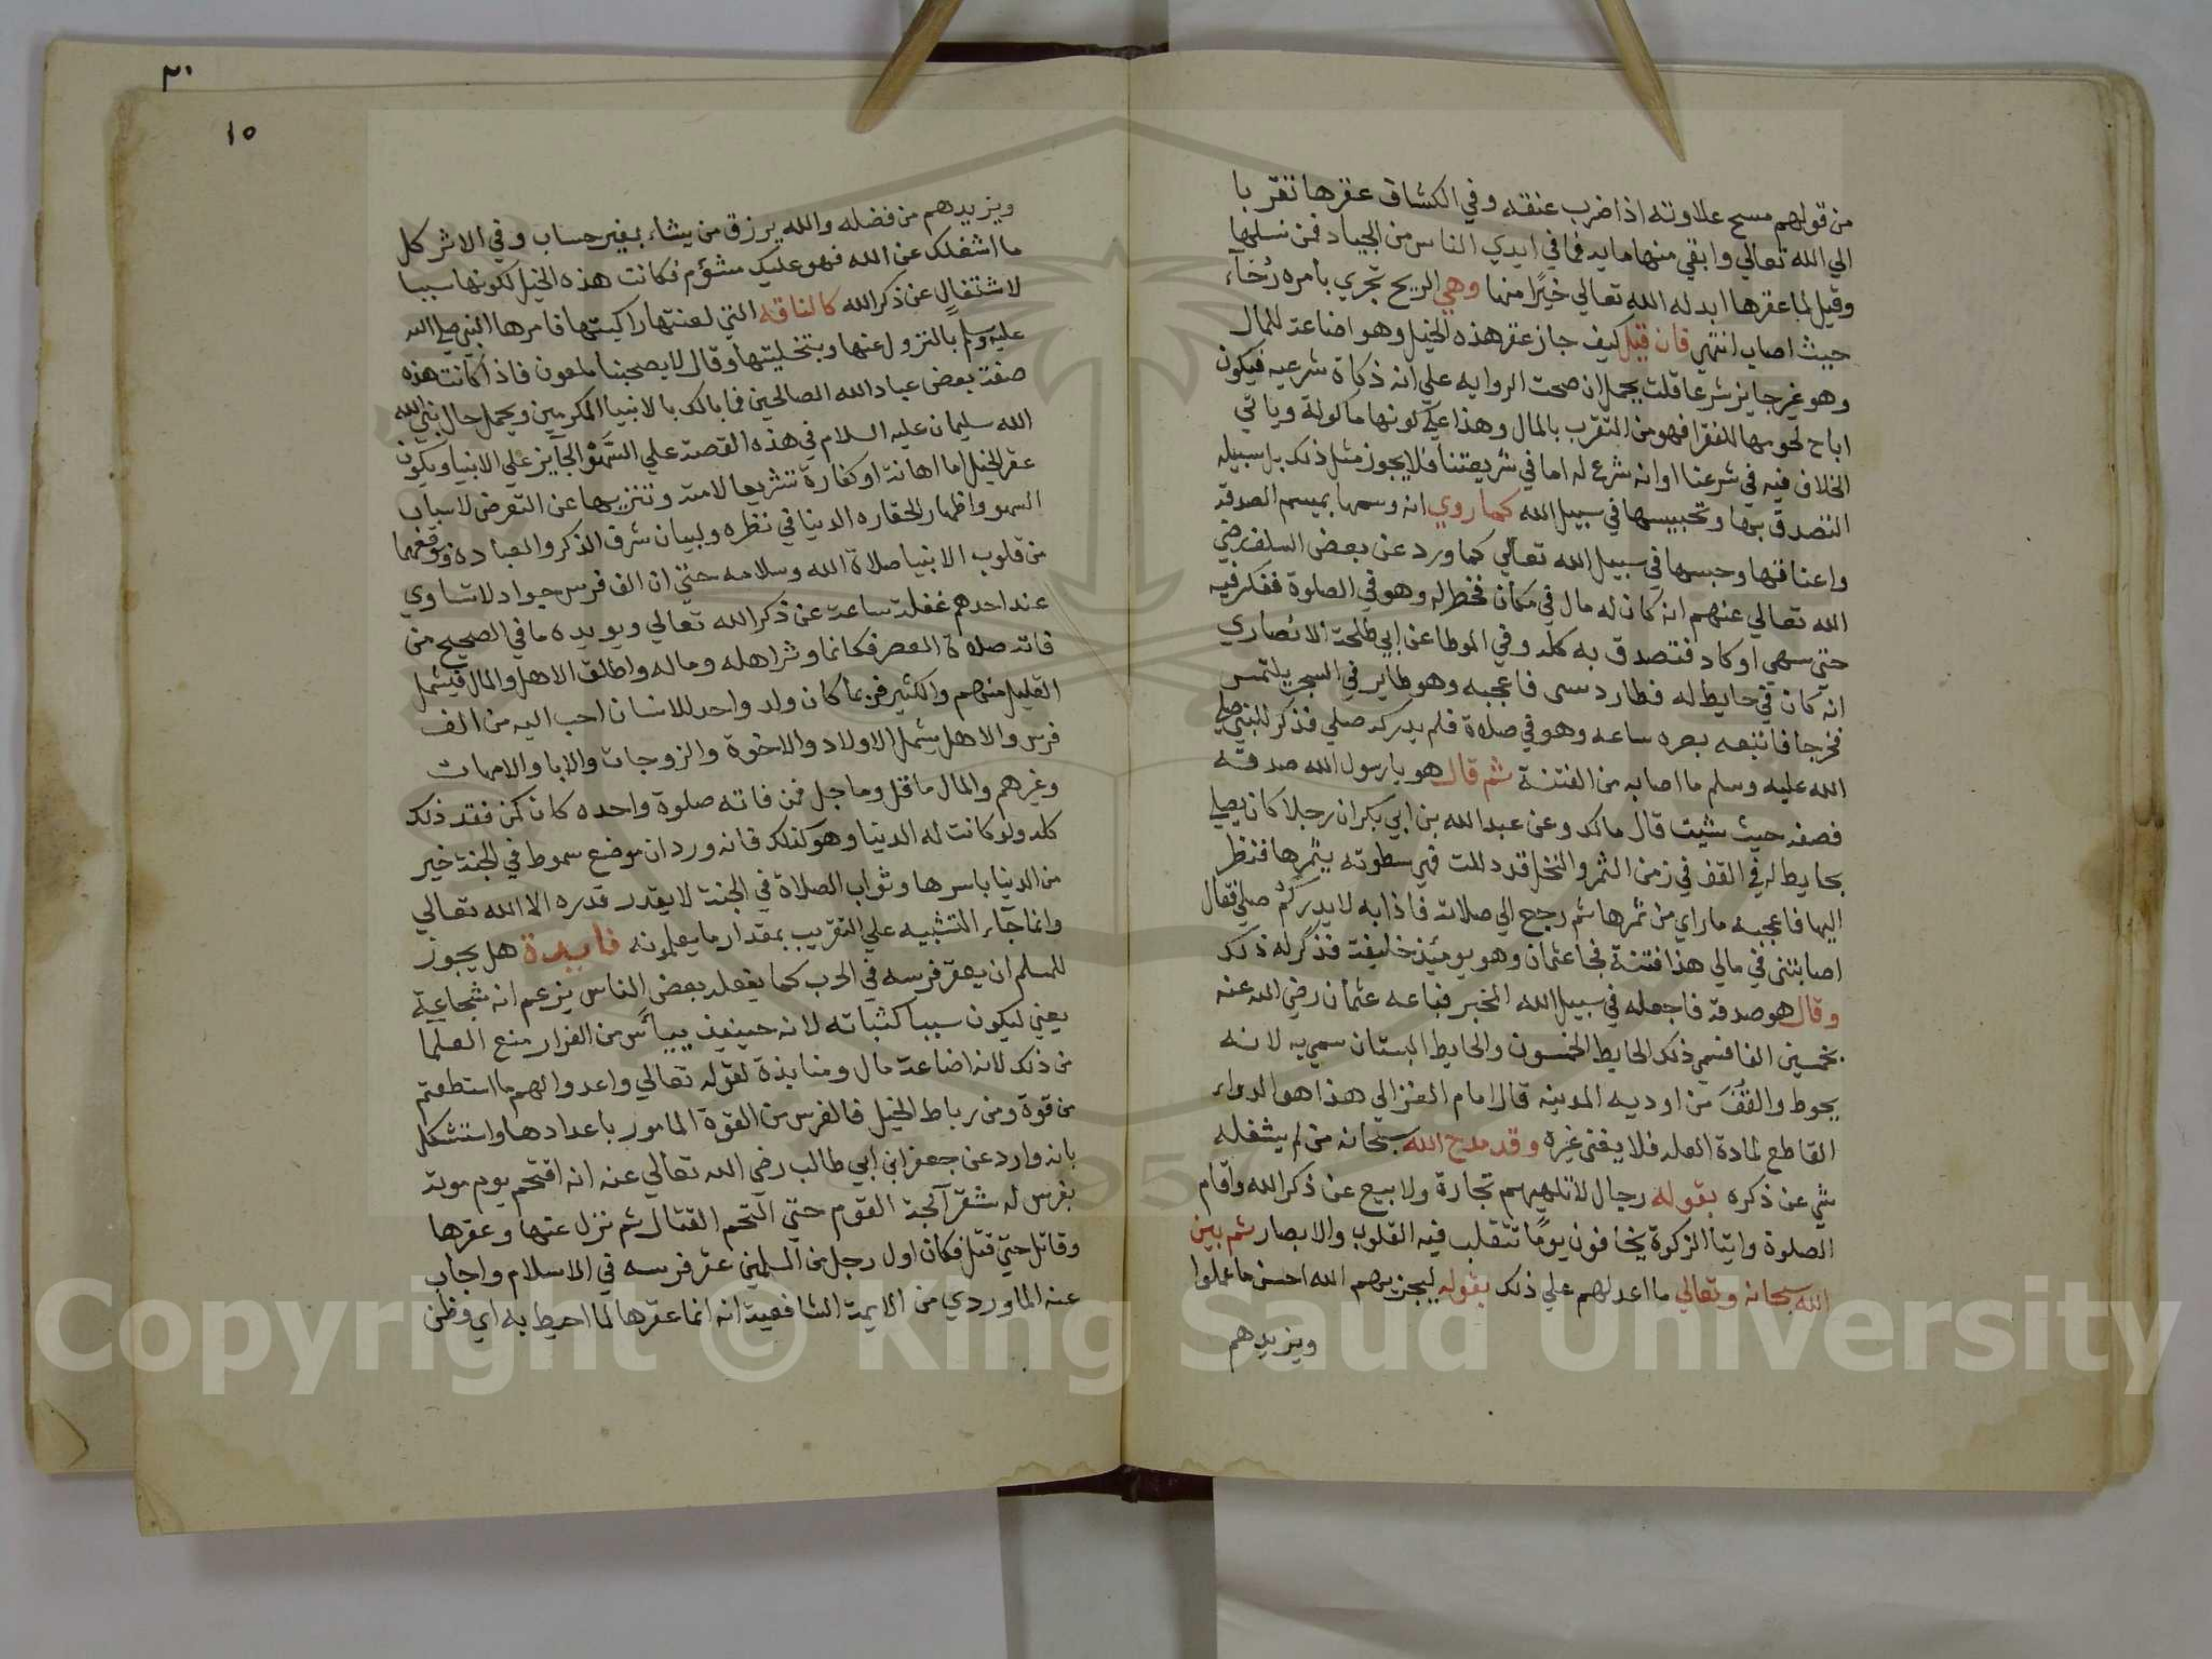 من قولهم مسح علاوته اذا ضرب عنقه وفي الكشاف عقرها تقربا
الي الله تعالي وابقي منها مايه فما في ايدي الناس من الجياد فمن نسلها
وقيل لما عقرها ابدله الله تعالي خيرًا منها وهي الريح تجري بامره رُخآء
حيث اصاب انتهي فان قيل كيف جاز عقر هذه الخيل وهو اضاعة للمال
وهو غير جايز شرعا قلت يحمل ان صحت الروايه علي انه ذكاة شرعيه فيكون
اباح لحومها للفقرا فهو من التقرب بالمال وهذا علي كونها ماكولة وياتي
الخلاف فيه في شرعنا او انه شرع له اما في شريعتنا فلا يجوز مثل ذلك بل سبيله
التصدق بها وتحبيسها في سبيل الله كما روي انه وسمها بميسم الصدقة
واعناقها وحبسها في سبيل الله تعالي كما ورد عن بعض السلف رضي
الله تعالي عنهم انه كان له مال في مكان فخطر له وهو في الصلوة ففكر فيه
حتي سهي او كاد فتصدق به كله وفي الموطا عن ابي طلحة الانصاري
انه كان في حايط له فطار دبسي فاعجبه وهو طاير في السجر يلتمس
مخرجا فاتبعه بصره ساعه وهو في صلاة فلم يدر كم صلي فذكر للنبي صلي
الله عليه وسلم ما اصابه من الفتنة ثم قال هو يا رسول الله صدقة
فضعه حيث شيت قال مالك وعن عبد الله بن ابي بكر ان رجلا كان يصلي
بحايط له في القف في زمن الثمر والنخل قد دللت فهي مطوقه بثمرها فنظر
اليها فاعجبه ما راي من ثمرها ثم رجع الي صلاته فاذا به لا يدري كم صلي فقال
اصابتني في مالي هذا فتنة فجا عثمان وهو يومئذ خليفة فذكر له ذلك
وقال هو صدقة فاجعله في سبيل الله الخبر فباعه عثمان رضي الله عنه
بخمسين الفا فسمي ذلك الحايط الخمسون والحايط البستان سمي به لانه
يحوط والقف من اوديه المدينه قال الامام الغزالي هذا هو الدواء
القاطع لمادة العله فلا يغني غيره وقد مدح الله سبحانه من لم يشغله
شي عن ذكره بقوله رجال لا تلهيهم تجارة ولا بيع عن ذكر الله واقام
الصلوة وايتآ الزكوة يخافون يومًا تتقلب فيه القلوب والابصار ثم بين
الله سبحانه وتعالي ما اعد لهم علي ذلك بقوله ليجزيهم الله احسن ما عملوا
ويزيدهم
٢٠
١٥
ويزيدهم من فضله والله يرزق من يشاء بغير حساب وفي الاثر كل
ما اشغلك عن الله فهو عليك مشؤم فكانت هذه الخيل لكونها سببا
لاشتغالٍ عن ذكر الله كالناقه التي لعنتها راكبتها فامرها النبي صلي الله
عليه وسلم بالنزول عنها وبتخليتها وقال لا يصحبنا ملعون فاذا كانت هذه
صفة بعض عباد الله الصالحين فما بالك بالانبيا المكرمين ويحمل حال نبي الله
الله سليمان عليه السلام في هذه القصة علي السَّهْو الجآيز علي الانبيا ويكون
عقر الخيل اما اهانة او كفارة تشريعا لامته وتنزيها عن التعرض لاسباب
السهو واظهار الحقاره الدنيا في نظره ولبيان شرف الذكر والعباده وموقعهما
من قلوب الانبيا صلاة الله وسلامه حتي ان الف فرس جواد لا تساوي
عند احدهم غفلة ساعة عن ذكر الله تعالي ويويده ما في الصحيح من
فاته صلاة العصر فكانما وتر اهله وماله واطلق الاهل والمال فيشمل
القليل منهم والكثير فربما كان ولد واحد للانسان احب اليه من الف
فرس والاهل يشمل الاولاد والاخوة والزوجات والابا والامهات
وغيرهم والمال ما قل وما جل فمن فاته صلوة واحده كان كمن فقد ذلك
كله ولو كانت له الدنيا وهو كذلك فانه ورد ان موضع سوط في الجنة خير
من الدنيا باسرها وثواب الصلاة في الجنة لا يقدر قدره الا الله تعالي
وانما جآء التشبيه علي التقريب بمقدار ما يعلمونه فايدة هل يجوز
للمسلم ان يعقر فرسه في الحرب كما يفعله بعض الناس يزعم انه شجاعة
يعني ليكون سببا كثباته لانه حينيذ ييأس من الفرار منع العلما
من ذلك لانه اضاعة مال ومنابذة لقوله تعالي واعدوا لهم ما استطعتم
من قوة ومن رباط الخيل فالفرس من القوة المامور باعدادها واستشكل
بانه وارد عن جعفر ابن ابي طالب رضي الله تعالي عنه انه اقتحم يوم موتة
بفرس له شقرآ لجة القوم حتي التحم القتال ثم نزل عنها وعقرها
وقاتل حتي قتل فكان اول رجل من المسلمين عقر فرسه في الاسلام واجاب
عنه الماوردي من الايمة الشافعية انه انما عقرها لما احيط به اي وظن
Copyright © King Saud University
1957